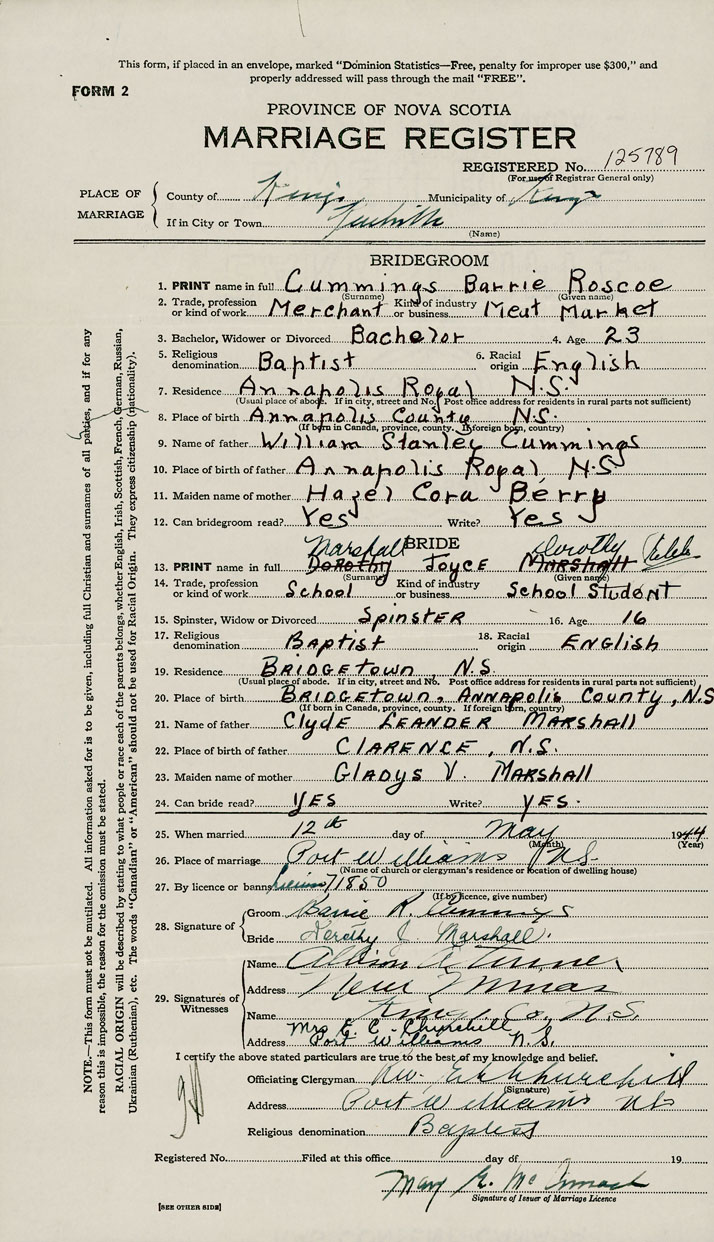 This form, if placed in an envelope, marked "Dominion Statistics—Free, penalty for improper use $300," and
properly addressed will pass through the mail "FREE".
FORM 2
PROVINCE OF NOVA SCOTIA
MARRIAGE REGISTER
REGISTERED No. 125789
(For use of Registrar General only)
PLACE OF MARRIAGE
County of Kings Municipality of Kings
If in City or Town
(Name)
BRIDEGROOM
1. PRINT name in full Cummings Barrie Roscoe
(Surname) (Given name)
2. Trade, profession or kind of work Merchant Kind of industry or business Meat Market
3. Bachelor, Widower or Divorced Bachelor 4. Age 23
5. Religious denomination Baptist 6. Racial origin English
7. Residence Annapolis Royal N.S.
(Usual place of abode. If in city, street and No. Post office address for residents in rural parts not sufficient)
8. Place of birth Annapolis County N.S.
(If born in Canada, province, county. If foreign born, country)
9. Name of father William Stanley Cummings
10. Place of birth of father Annapolis Royal, N.S
11. Maiden name of mother Hazel Cora Berry
12. Can bridegroom read? Yes Write? Yes
BRIDE
Marshall Dorothy
13. PRINT name in full Dorothy Joyce Marshall
(Surname) (Given name)
14. Trade, profession or kind of work School Kind of industry or business School Student
15. Spinster, Widow or Divorced SPINSTER 16. Age 16
17. Religious denomination BAPTIST 18. Racial origin ENGLISH
19. Residence BRIDGETOWN, N.S.
(Usual place of abode. If in city, street and No. Post office address for residents in rural parts not sufficient)
20. Place of birth BRIDGETOWN, ANNAPOLIS COUNTY, N.S
(If born in Canada, province, county. If foreign born, country)
21. Name of father Clyde LEANDER MARSHALL
22. Place of birth of father CLARENCE, N.S.
23. Maiden name of mother GLADYS V. MARSHALL
24. Can bride read? YES Write? YES.
25. When married 12th day of May 1944
(Month) (Year)
26. Place of marriage Port Williams N.S.
(Name of church or clergyman's residence or location of dwelling house)
27. By licence or banns licence 71850
(If by licence, give number)
28. Signature of
Groom Barrie R. Cummings
Bride Dorothy J Marshall.
29. Signatures of Witnesses
Name
Address
Name Kings Co., N.S.
Mrs E. C. Churchill
Address Port Williams N.S.
I certify the above stated particulars are true to the best of my knowledge and belief.
Officiating Clergyman Rev. Churchill
(Signature)
Address Port Williams NS
Religious denomination Baptist
Registered No. Filed at this office day of 19
Mary
Signature of Issuer of Marriage Licence
[SEE OTHER SIDE]
NOTE.—This form must not be mutilated. All information asked for is to be given, including full Christian and surnames of all parties, and if for any
reason this is impossible, the reason for the omission must be stated.
RACIAL ORIGIN will be described by stating to what people or race each of the parents belongs, whether English, Irish, Scottish, French, German, Russian,
Ukrainian (Ruthenian), etc. The words "Canadian" or "American" should not be used for Racial Origin. They express citizenship (nationality).